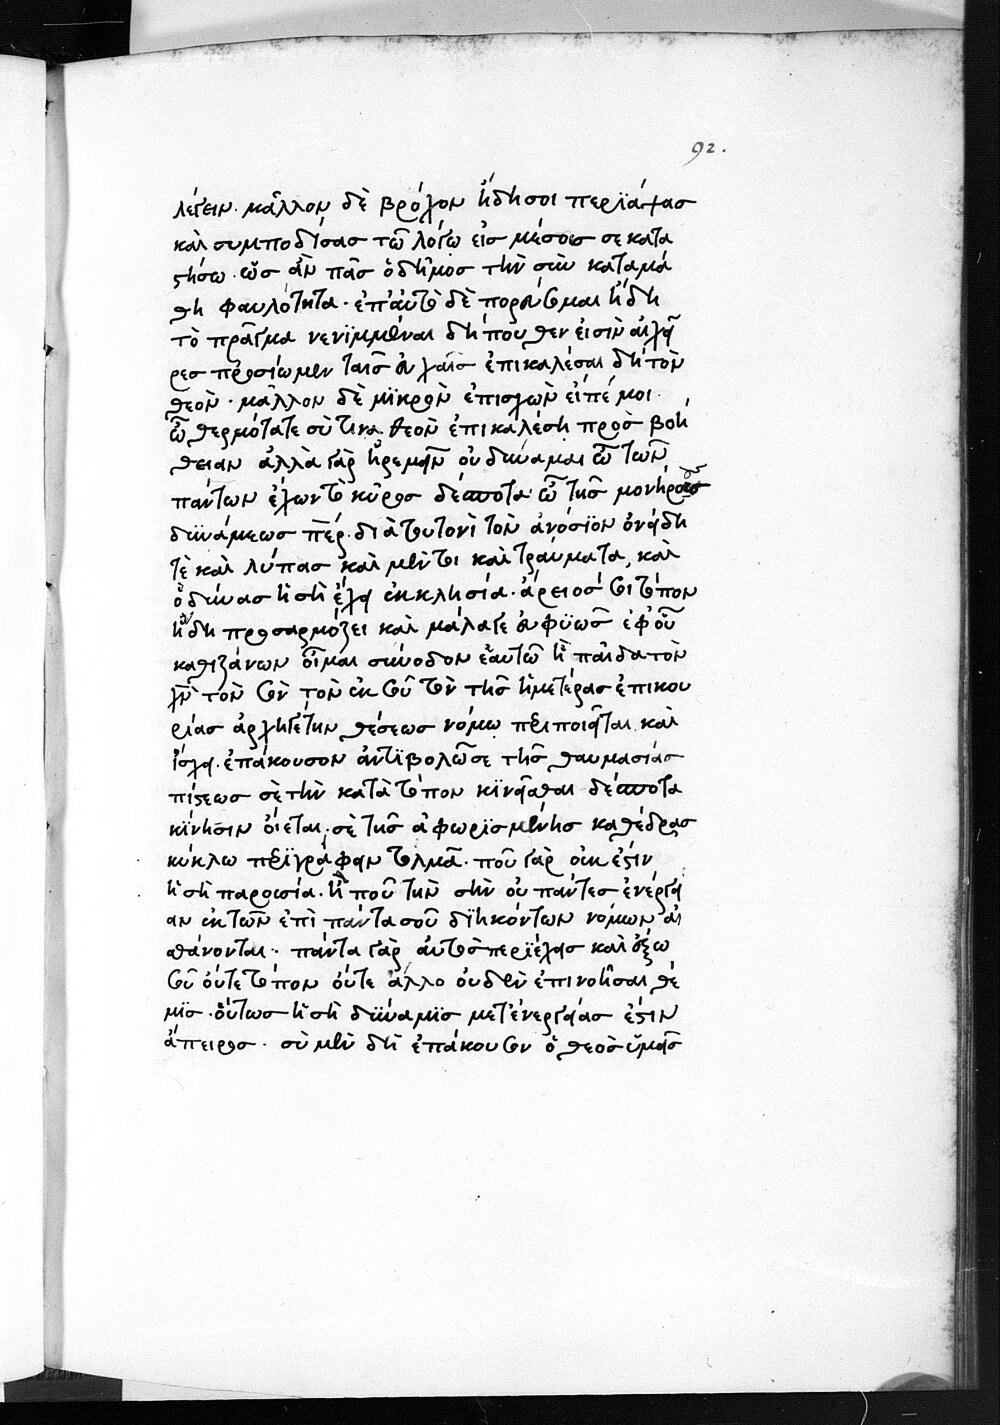 92.
λέγειν. μᾶλλον δὲ βρόχον ἤδη σοι περϊάψας
καὶ συμποδίσας τῶ λόγω εἰς μέσους σε κατα
στήσω. ὡς ἂν πᾶς ὁ δῆμος τὴν σὴν καταμά
θη φαυλότητα. ἐπ' αὐτὸ δὲ πορεύσομαι ἤδη
τὸ πρᾶγμα νενϊμμέναι δήπουθεν εἰσὶν αἱ χεῖ
ρες προσίωμεν ταῖς εὐχαῖς ἐπικαλέσαι δὴ τὸν
θεὸν. μᾶλλον δὲ μϊκρὸν ἐπισχὼν εἰπέ μοι.
ὦ θερμότατε σὺ τίνα θεὸν ἐπικαλέση πρὸς βοή
θειαν ἀλλὰ γὰρ ἠρεμεῖν οὐ δύναμαι ὦ τῶν
πάντων ἔχων τὸ κῦρος δέσποτα ὦ τῆς μονήρους
δϋνάμεως πέρ. διὰ τουτονὶ τὸν ἀνόσϊον ὀνείδη
τὲ καὶ λύπας καὶ μέντοι καὶ τραύματα, καὶ
ὀδύνας ἡ σὴ ἔχει ἐκκλησία. ἄρειος σοι τόπον
ἤδη προσαρμόζει καὶ μάλα γε εὐφϋῶς ἐφ' οὗ
καθιζάνων οἶμαι σύνοδον ἑαυτῶ ἢ παῖδα τὸν
χν τὸν σὸν τὸν ἐκ σοῦ τὸν τῆς ἡμετέρας ἐπικου
ρίας ἀρχηγέτην θέσεως νόμω περιποιεῖται καὶ
ἴσχει. ἐπάκουσον ἀντϊβολῶ σε τῆς θαυμασίας
πίστεως σὲ τὴν κατὰ τόπον κϊνεῖσθαι δέσποτα
κϊνησιν οἴεται. σὲ τῆς ἀφωρϊσμένης καθέδρας
κύκλω περϊγράφειν τολμᾶ. ποῦ γὰρ οὐκ ἔστιν
ἡ σὴ παρουσία. ἢ ποῦ τὴν σὴν οὐ πάντες ἐνέργει
αν ἐκ τῶν ἐπὶ πάντα σοῦ δϊηκόντων νόμων αἰ
σθάνονται. πάντα γὰρ αὐτὸς περϊέχεις καὶ ἔξω
σοῦ οὔτε τόπον οὔτε ἄλλο οὐδὲν ἐπινοῆσαι θέ
μϊς. οὕτως ἡ σὴ δϋναμϊς μετ' ἐνεργείας ἐστὶν
ἄπειρος. σὺ μὲν δὴ ἐπάκουσον ὁ θεὸς ὑμεῖς